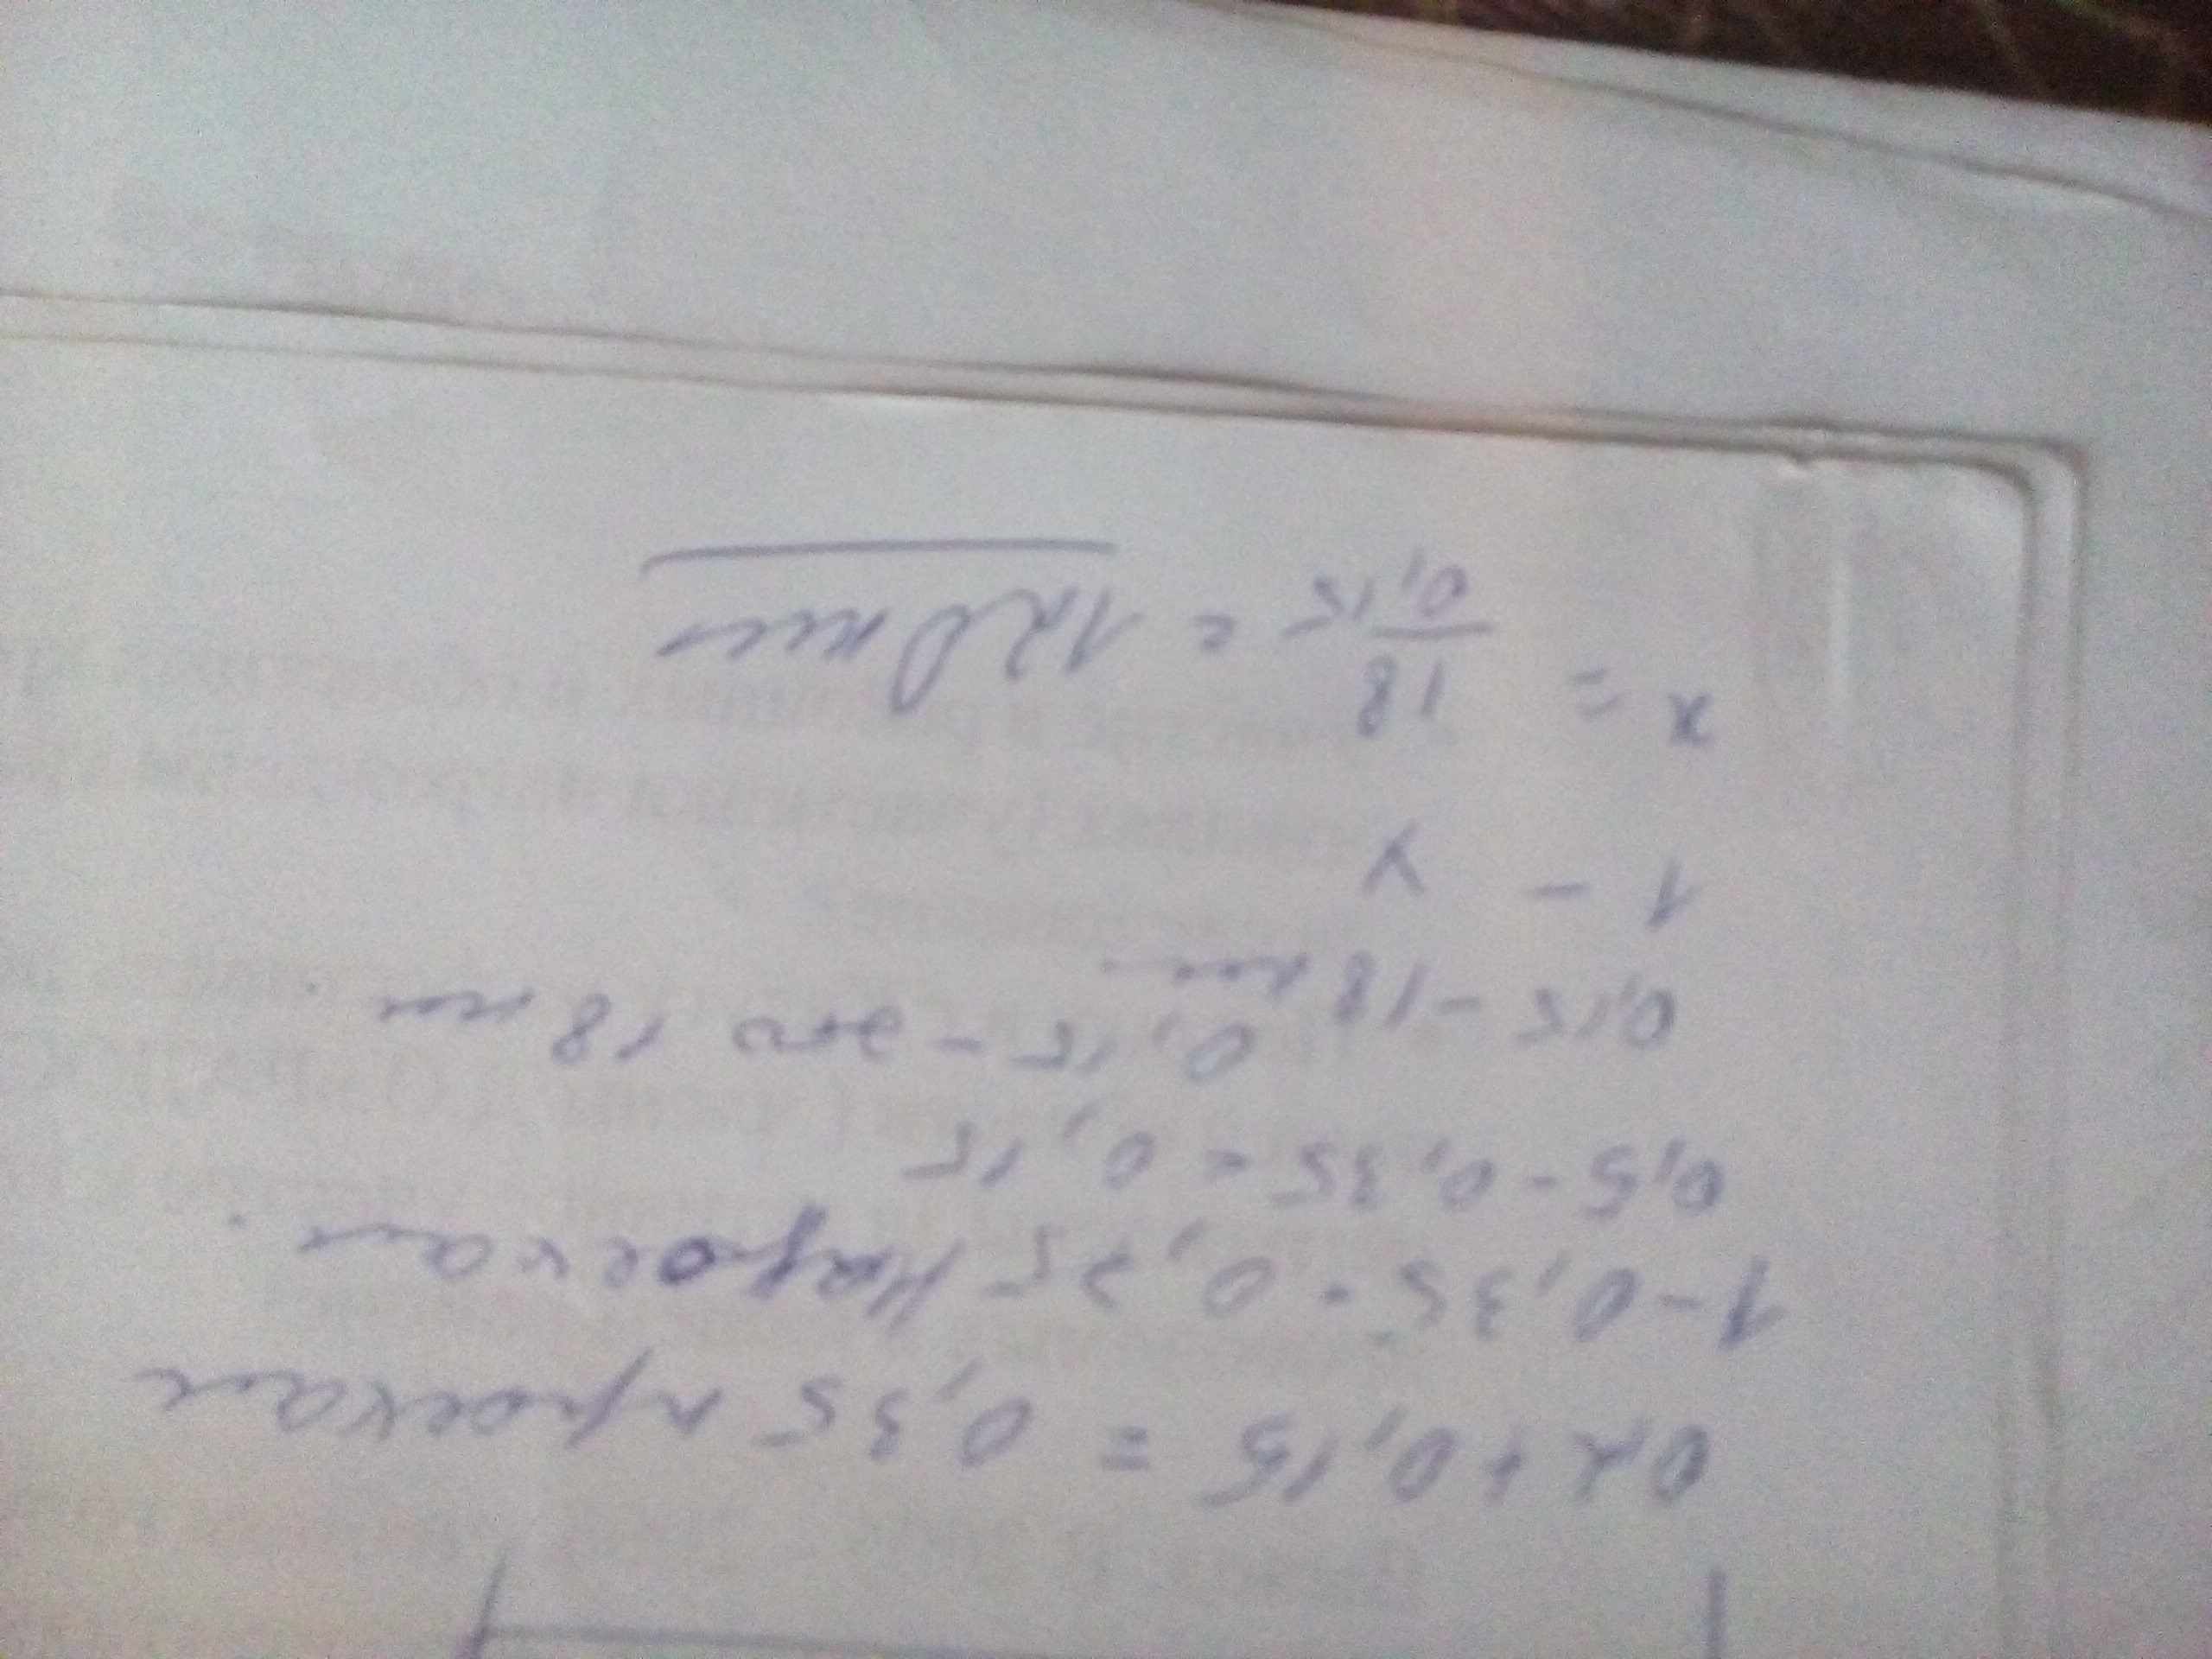 0,2+0,15 = 0,35 проехал
1-0,35 =
0,5-0,35 = 0,15
0,15 - это 18 км.
0,15 - 18 км
1 - x
x = 18/0,15 = 120 км